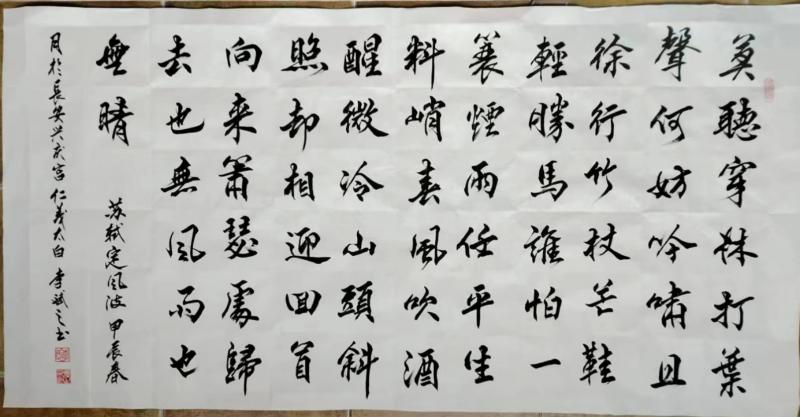 莫聽穿林打葉
聲何妨吟嘯且
徐行竹杖芒鞋
輕勝馬誰怕一
蓑煙雨任平生
料峭春風吹酒
醒微冷山頭斜
照却相迎回首
向来蕭瑟處歸
去也無風雨也
無晴
苏轼定风波 甲辰春
月於長安兴庆宫 仁義太白 李斌之书